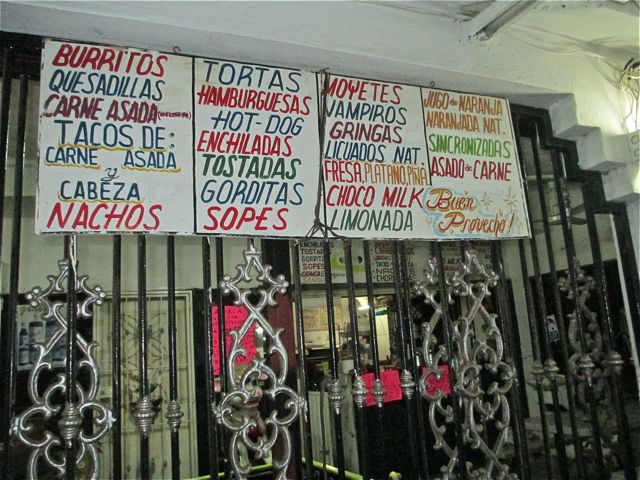 BURRITOS
QUESADILLAS
CARNE ASADA
TACOS DE:
CARNE ASADA
y
CABEZA
NACHOS
TORTAS
HAMBURGUESAS
HOT-DOG
ENCHILADAS
TOSTADAS
GORDITAS
SOPES
MOYETES
VAMPIROS
GRINGAS
LICUADOS NAT.
FRESA, PLATANO, PIÑA
CHOCO MILK
LIMONADA
JUGO de NARANJA
NARANJADA NAT.
SINCRONIZADAS
ASADO de CARNE
Buen
Provecho!
ENCHILADAS
TOSTADAS
SOPES
GRINGAS